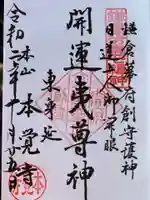 鎌倉幕府創守護神
日蓮上人御開眼
開運夷尊神
東身延
本山 本覚寺
令和二年十月廿五日